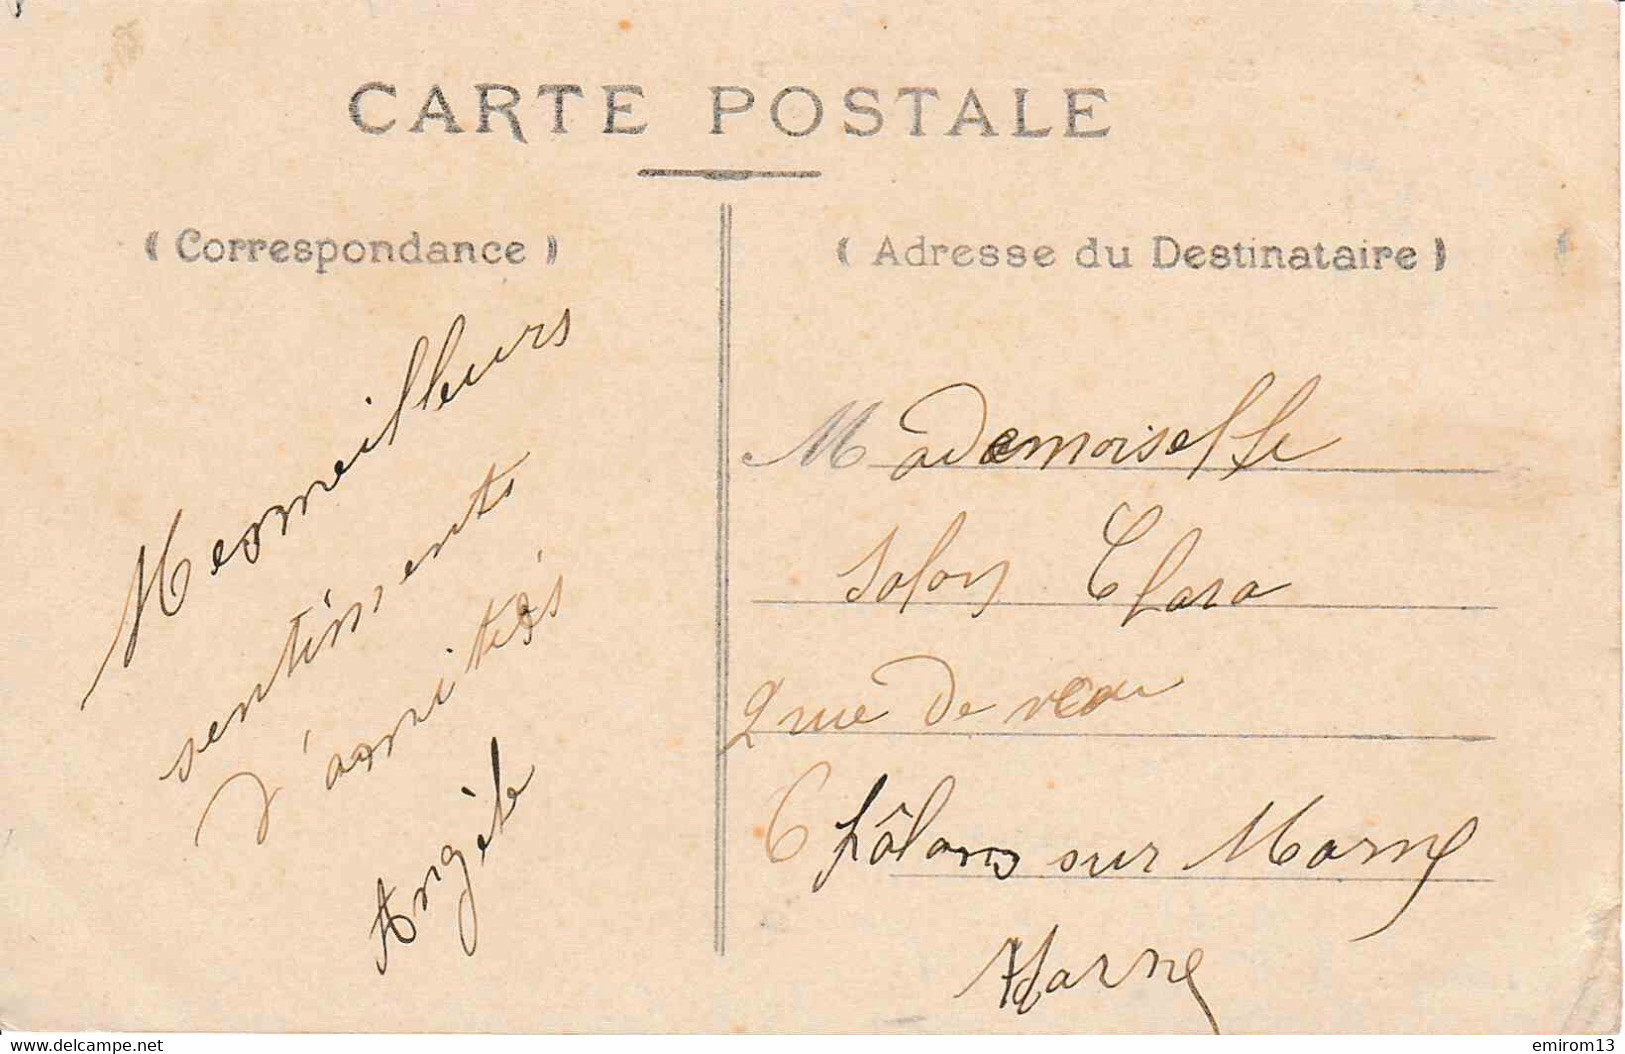 CARTE POSTALE
( Correspondance )
Mes meilleurs
sentiments
d'amitiés
Angèle
( Adresse du Destinataire )
Mademoiselle
Salon Clara
rue de
Châlons sur Marne
Marne
www.delcampe.net
emirom13